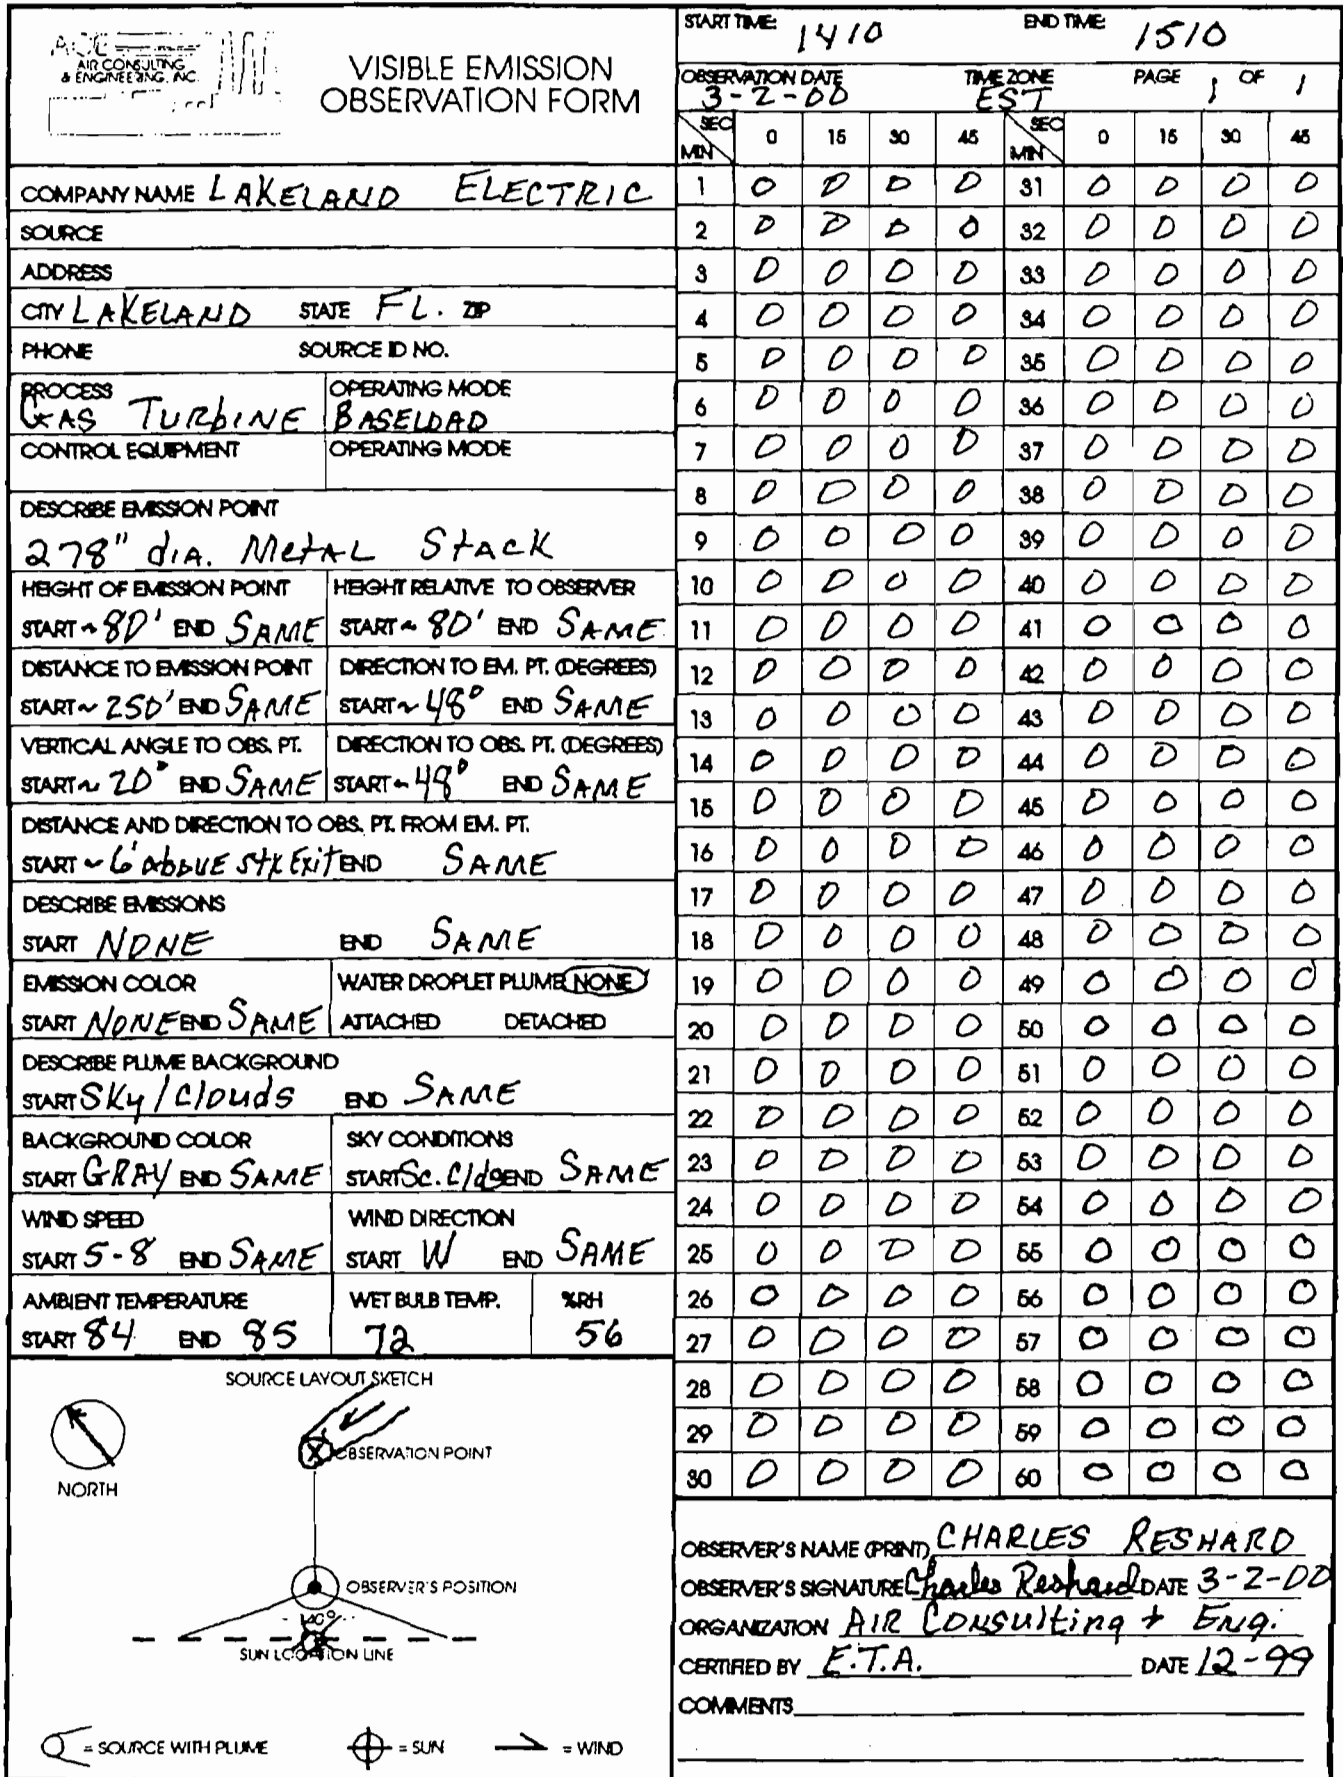 AIR CONSULTING
& ENGINEERING, INC.
VISIBLE EMISSION
OBSERVATION FORM
COMPANY NAME LAKELAND ELECTRIC
SOURCE
ADDRESS
CITY LAKELAND STATE FL. ZIP
PHONE SOURCE ID NO.
PROCESS OPERATING MODE
GAS TURBINE BASELOAD
CONTROL EQUIPMENT OPERATING MODE
DESCRIBE EMISSION POINT
278" dIA. MetAL StAcK
HEIGHT OF EMISSION POINT HEIGHT RELATIVE TO OBSERVER
START ~ 80' END SAME START ~ 80' END SAME
DISTANCE TO EMISSION POINT DIRECTION TO EM. PT. (DEGREES)
START ~ 250' END SAME START ~ 48° END SAME
VERTICAL ANGLE TO OBS. PT. DIRECTION TO OBS. PT. (DEGREES)
START ~ 20° END SAME START ~ 48° END SAME
DISTANCE AND DIRECTION TO OBS. PT. FROM EM. PT.
START ~ 6' AbovE StK ExiT END SAME
DESCRIBE EMISSIONS
START NONE END SAME
EMISSION COLOR WATER DROPLET PLUME NONE
START NONE END SAME ATTACHED DETACHED
DESCRIBE PLUME BACKGROUND
START SKy/Clouds END SAME
BACKGROUND COLOR SKY CONDITIONS
START GRAY END SAME START Sc. Clds END SAME
WIND SPEED WIND DIRECTION
START 5-8 END SAME START W END SAME
AMBIENT TEMPERATURE WET BULB TEMP. %RH
START 84 END 85 72 56
SOURCE LAYOUT SKETCH
OBSERVATION POINT
NORTH
OBSERVER'S POSITION
140°
SUN LOCATION LINE
= SOURCE WITH PLUME = SUN = WIND
START TIME: 1410 END TIME: 1510
OBSERVATION DATE TIME ZONE PAGE 1 OF 1
3-2-00 EST
SEC MIN 0 15 30 45 SEC MIN 0 15 30 45
1 0 0 0 0 31 0 0 0 0
2 0 0 0 0 32 0 0 0 0
3 0 0 0 0 33 0 0 0 0
4 0 0 0 0 34 0 0 0 0
5 0 0 0 0 35 0 0 0 0
6 0 0 0 0 36 0 0 0 0
7 0 0 0 0 37 0 0 0 0
8 0 0 0 0 38 0 0 0 0
9 0 0 0 0 39 0 0 0 0
10 0 0 0 0 40 0 0 0 0
11 0 0 0 0 41 0 0 0 0
12 0 0 0 0 42 0 0 0 0
13 0 0 0 0 43 0 0 0 0
14 0 0 0 0 44 0 0 0 0
15 0 0 0 0 45 0 0 0 0
16 0 0 0 0 46 0 0 0 0
17 0 0 0 0 47 0 0 0 0
18 0 0 0 0 48 0 0 0 0
19 0 0 0 0 49 0 0 0 0
20 0 0 0 0 50 0 0 0 0
21 0 0 0 0 51 0 0 0 0
22 0 0 0 0 52 0 0 0 0
23 0 0 0 0 53 0 0 0 0
24 0 0 0 0 54 0 0 0 0
25 0 0 0 0 55 0 0 0 0
26 0 0 0 0 56 0 0 0 0
27 0 0 0 0 57 0 0 0 0
28 0 0 0 0 58 0 0 0 0
29 0 0 0 0 59 0 0 0 0
30 0 0 0 0 60 0 0 0 0
OBSERVER'S NAME (PRINT) CHARLES RESHARD
OBSERVER'S SIGNATURE Charles Reshard DATE 3-2-00
ORGANIZATION AIR Consulting + Eng.
CERTIFIED BY E.T.A. DATE 12-99
COMMENTS